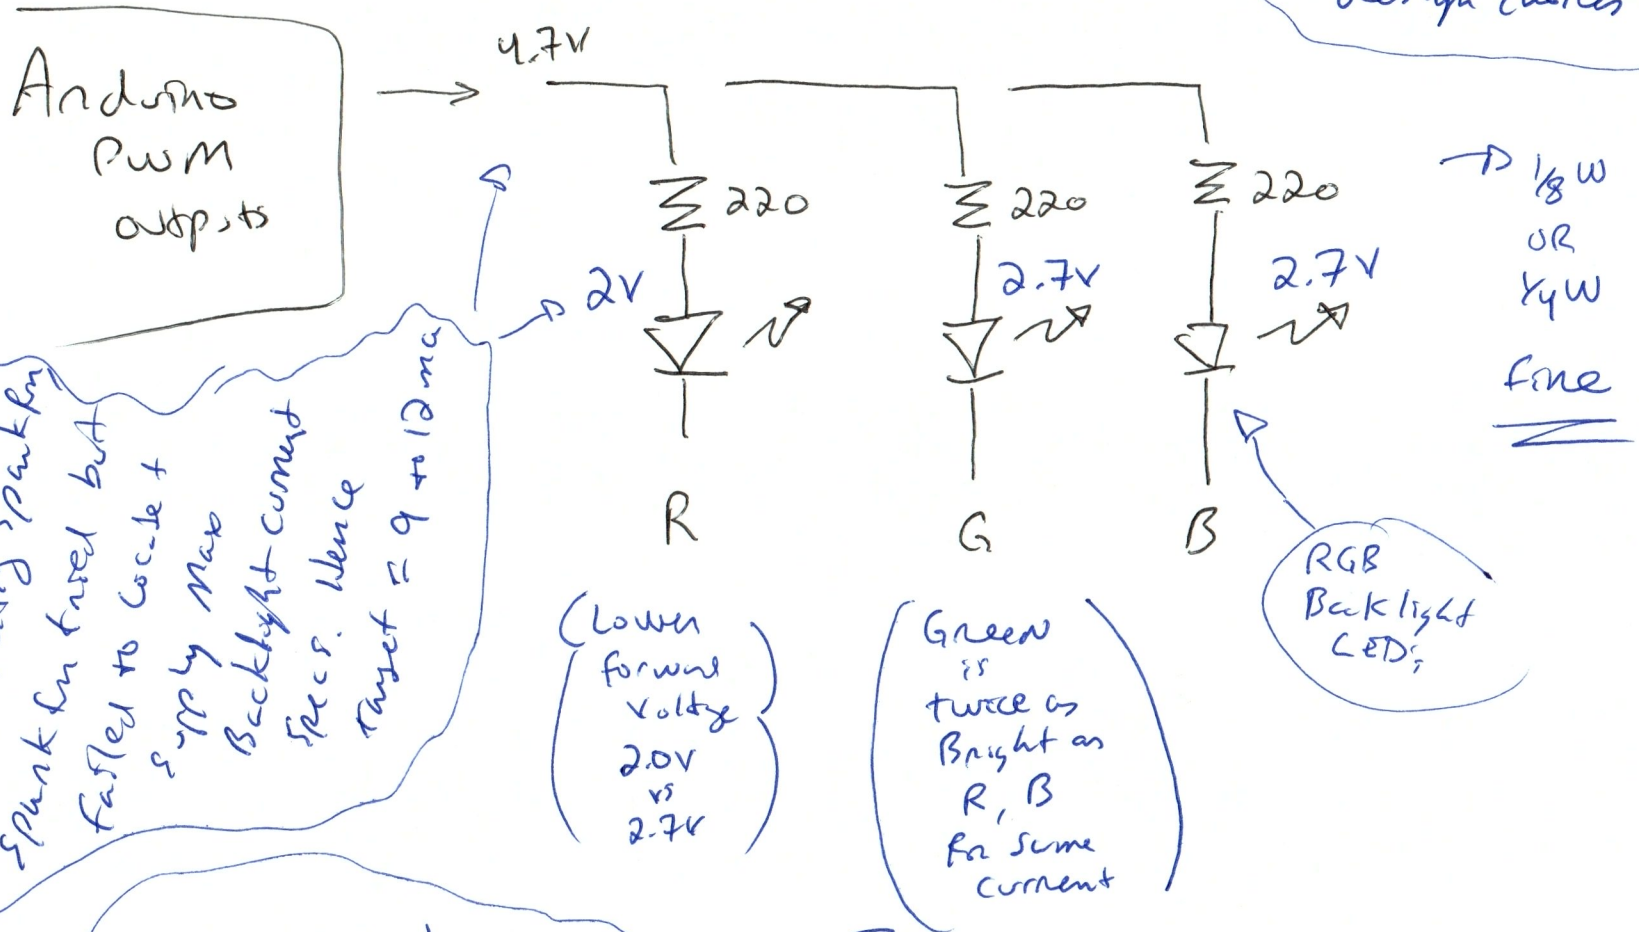 design choices
Arduino
PWM
outputs
4.7V
220
220
220
2V
2.7V
2.7V
1/8 W
OR
1/4 W
fine
R
G
B
RGB
Backlight
LEDs
(Lower
forward
Voltage
2.0V
vs
2.7V)
(Green
is
twice as
Bright as
R, B
for same
current)
Sparkfun
Sparkfun tried but
failed to locate +
supply Max
Backlight current
specs. Hence
target = 9 to 12 ma